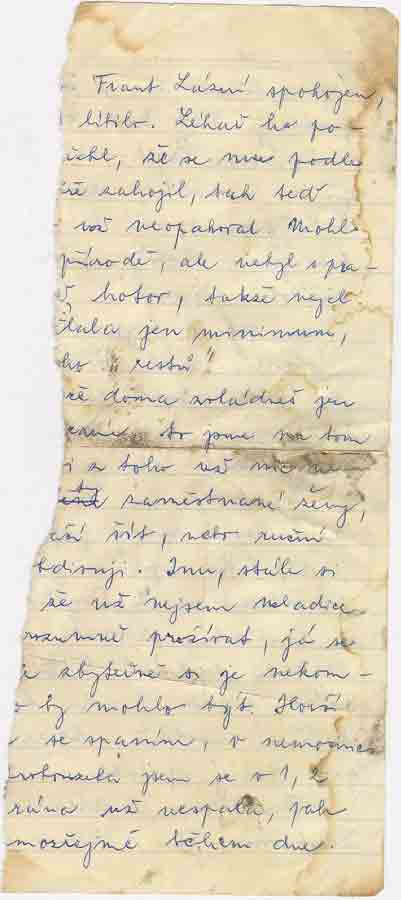 Frant Lázní spokojen,
lítilo. Lékař ho po-
že se mu podle
zahojil, tak teď
už neopakoval. Mohl
přírodě, ale nebyl s pra-
hotov, takže nejel
jen minimum,
ho "restů"
že doma zvládneš jen
to jsme na tom
i z toho už nic není
ty zaměstnané ženy,
šít, nebo ruční
obdivuji. Inu, stále si
že už nejsem mladice
rozumně prožívat, já se
zbytečně si je nekom-
o by mohlo být. Horší
se spaním, v nemocnici
probouzela jsem se v 1, 2
rána už nespala, jak
mozřejmě během dne.